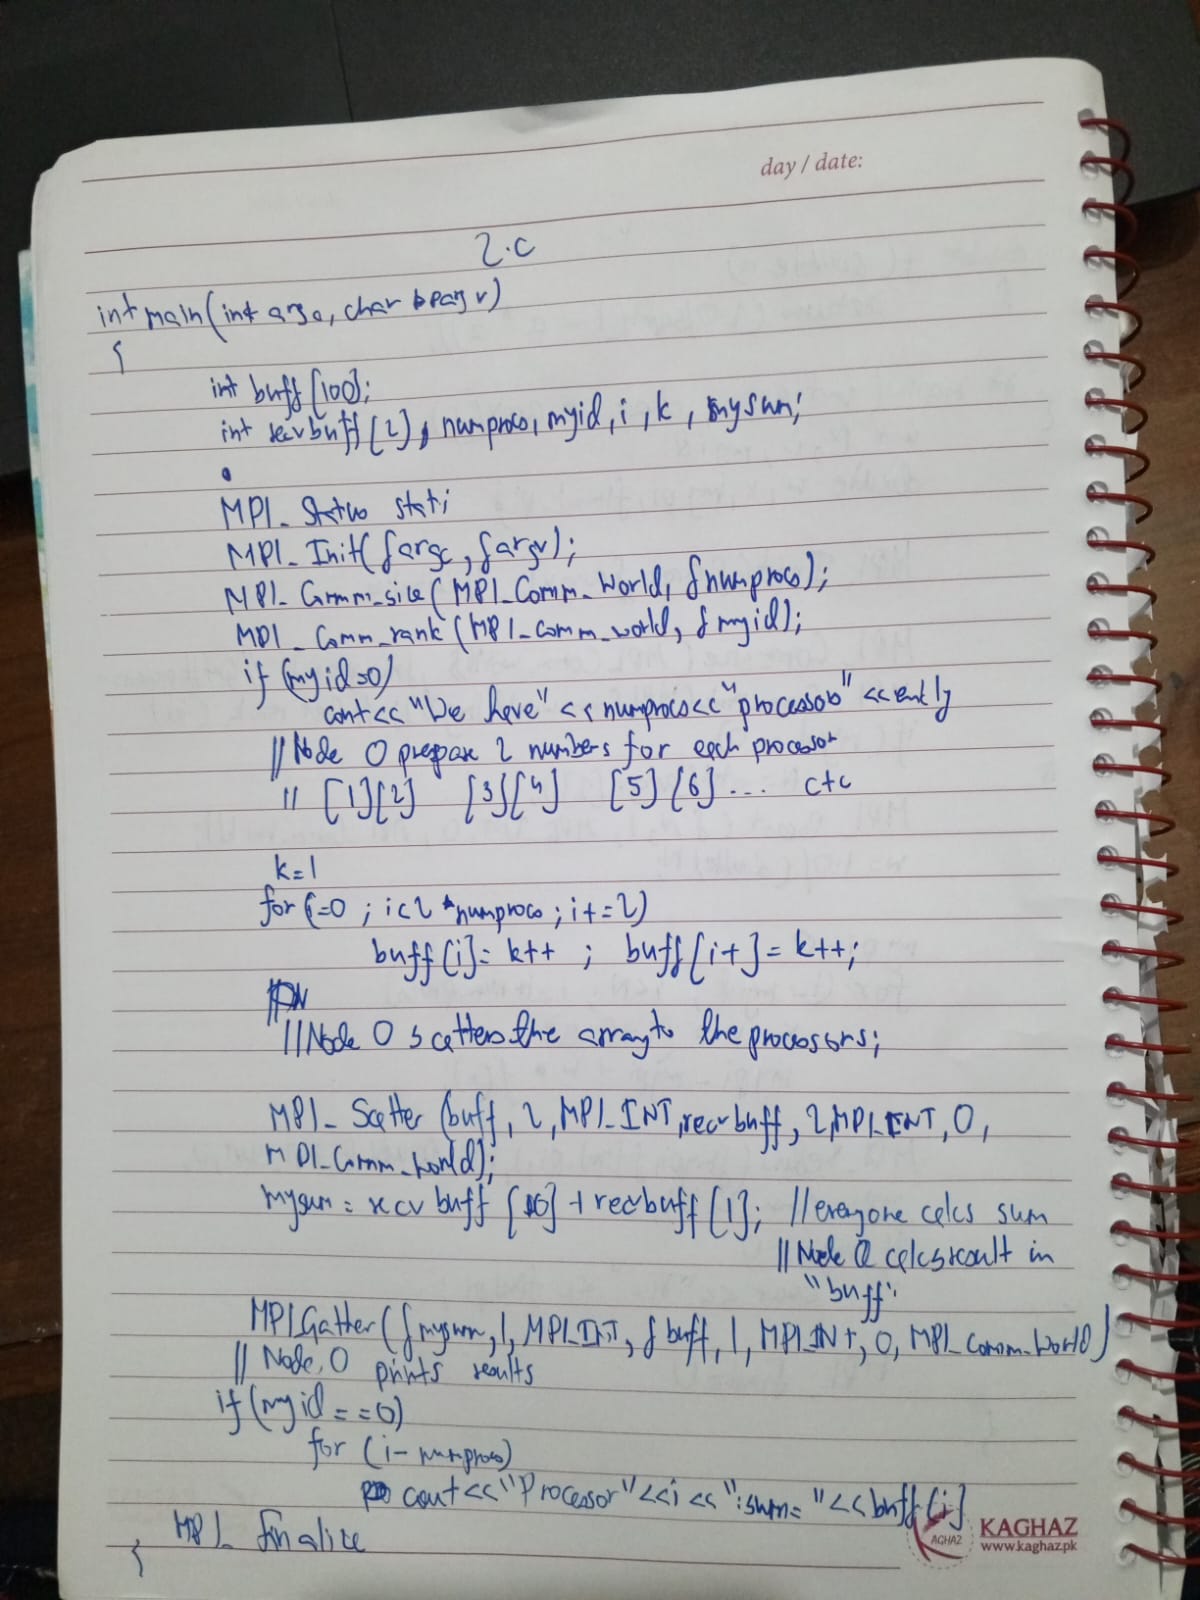 day / date:
2.c
int main(int argc, char **argv)
{
int buff[100];
int recvbuff[2], numprocs, myid, i, k, mysum;
MPI_Status stat;
MPI_Init(&argc, &argv);
MPI_Comm_size(MPI_Comm_World, &numprocs);
MPI_Comm_rank(MPI_Comm_world, &myid);
if (myid==0)
cout<< "We have" << numprocs<< "processors" <<endl;
//Node 0 prepare 2 numbers for each processor
// [1][2] [3][4] [5][6] ... etc
k=1
for(i=0 ; i<2 *numprocs ; i+=2)
buff[i]= k++ ; buff[i+]= k++;
//Node 0 scatters the array to the processors;
MPI_Scatter (buff, 2, MPI_INT, recvbuff, 2, MPI_INT, 0,
MPI_Comm_World);
mysum = recvbuff[0] + recvbuff[1]; //everyone calcs sum
//Node 0 calcs result in
"buff".
MPI_Gather(&mysum, 1, MPI_INT, &buff, 1, MPI_INT, 0, MPI_Comm_World)
// Node 0 prints results
if(myid==0)
for (i- numprocs)
cout<<"Processor"<<i<<":sum= "<<buff[i]
MPI_Finalize
}
AGHAZ
KAGHAZ
www.kaghaz.pk